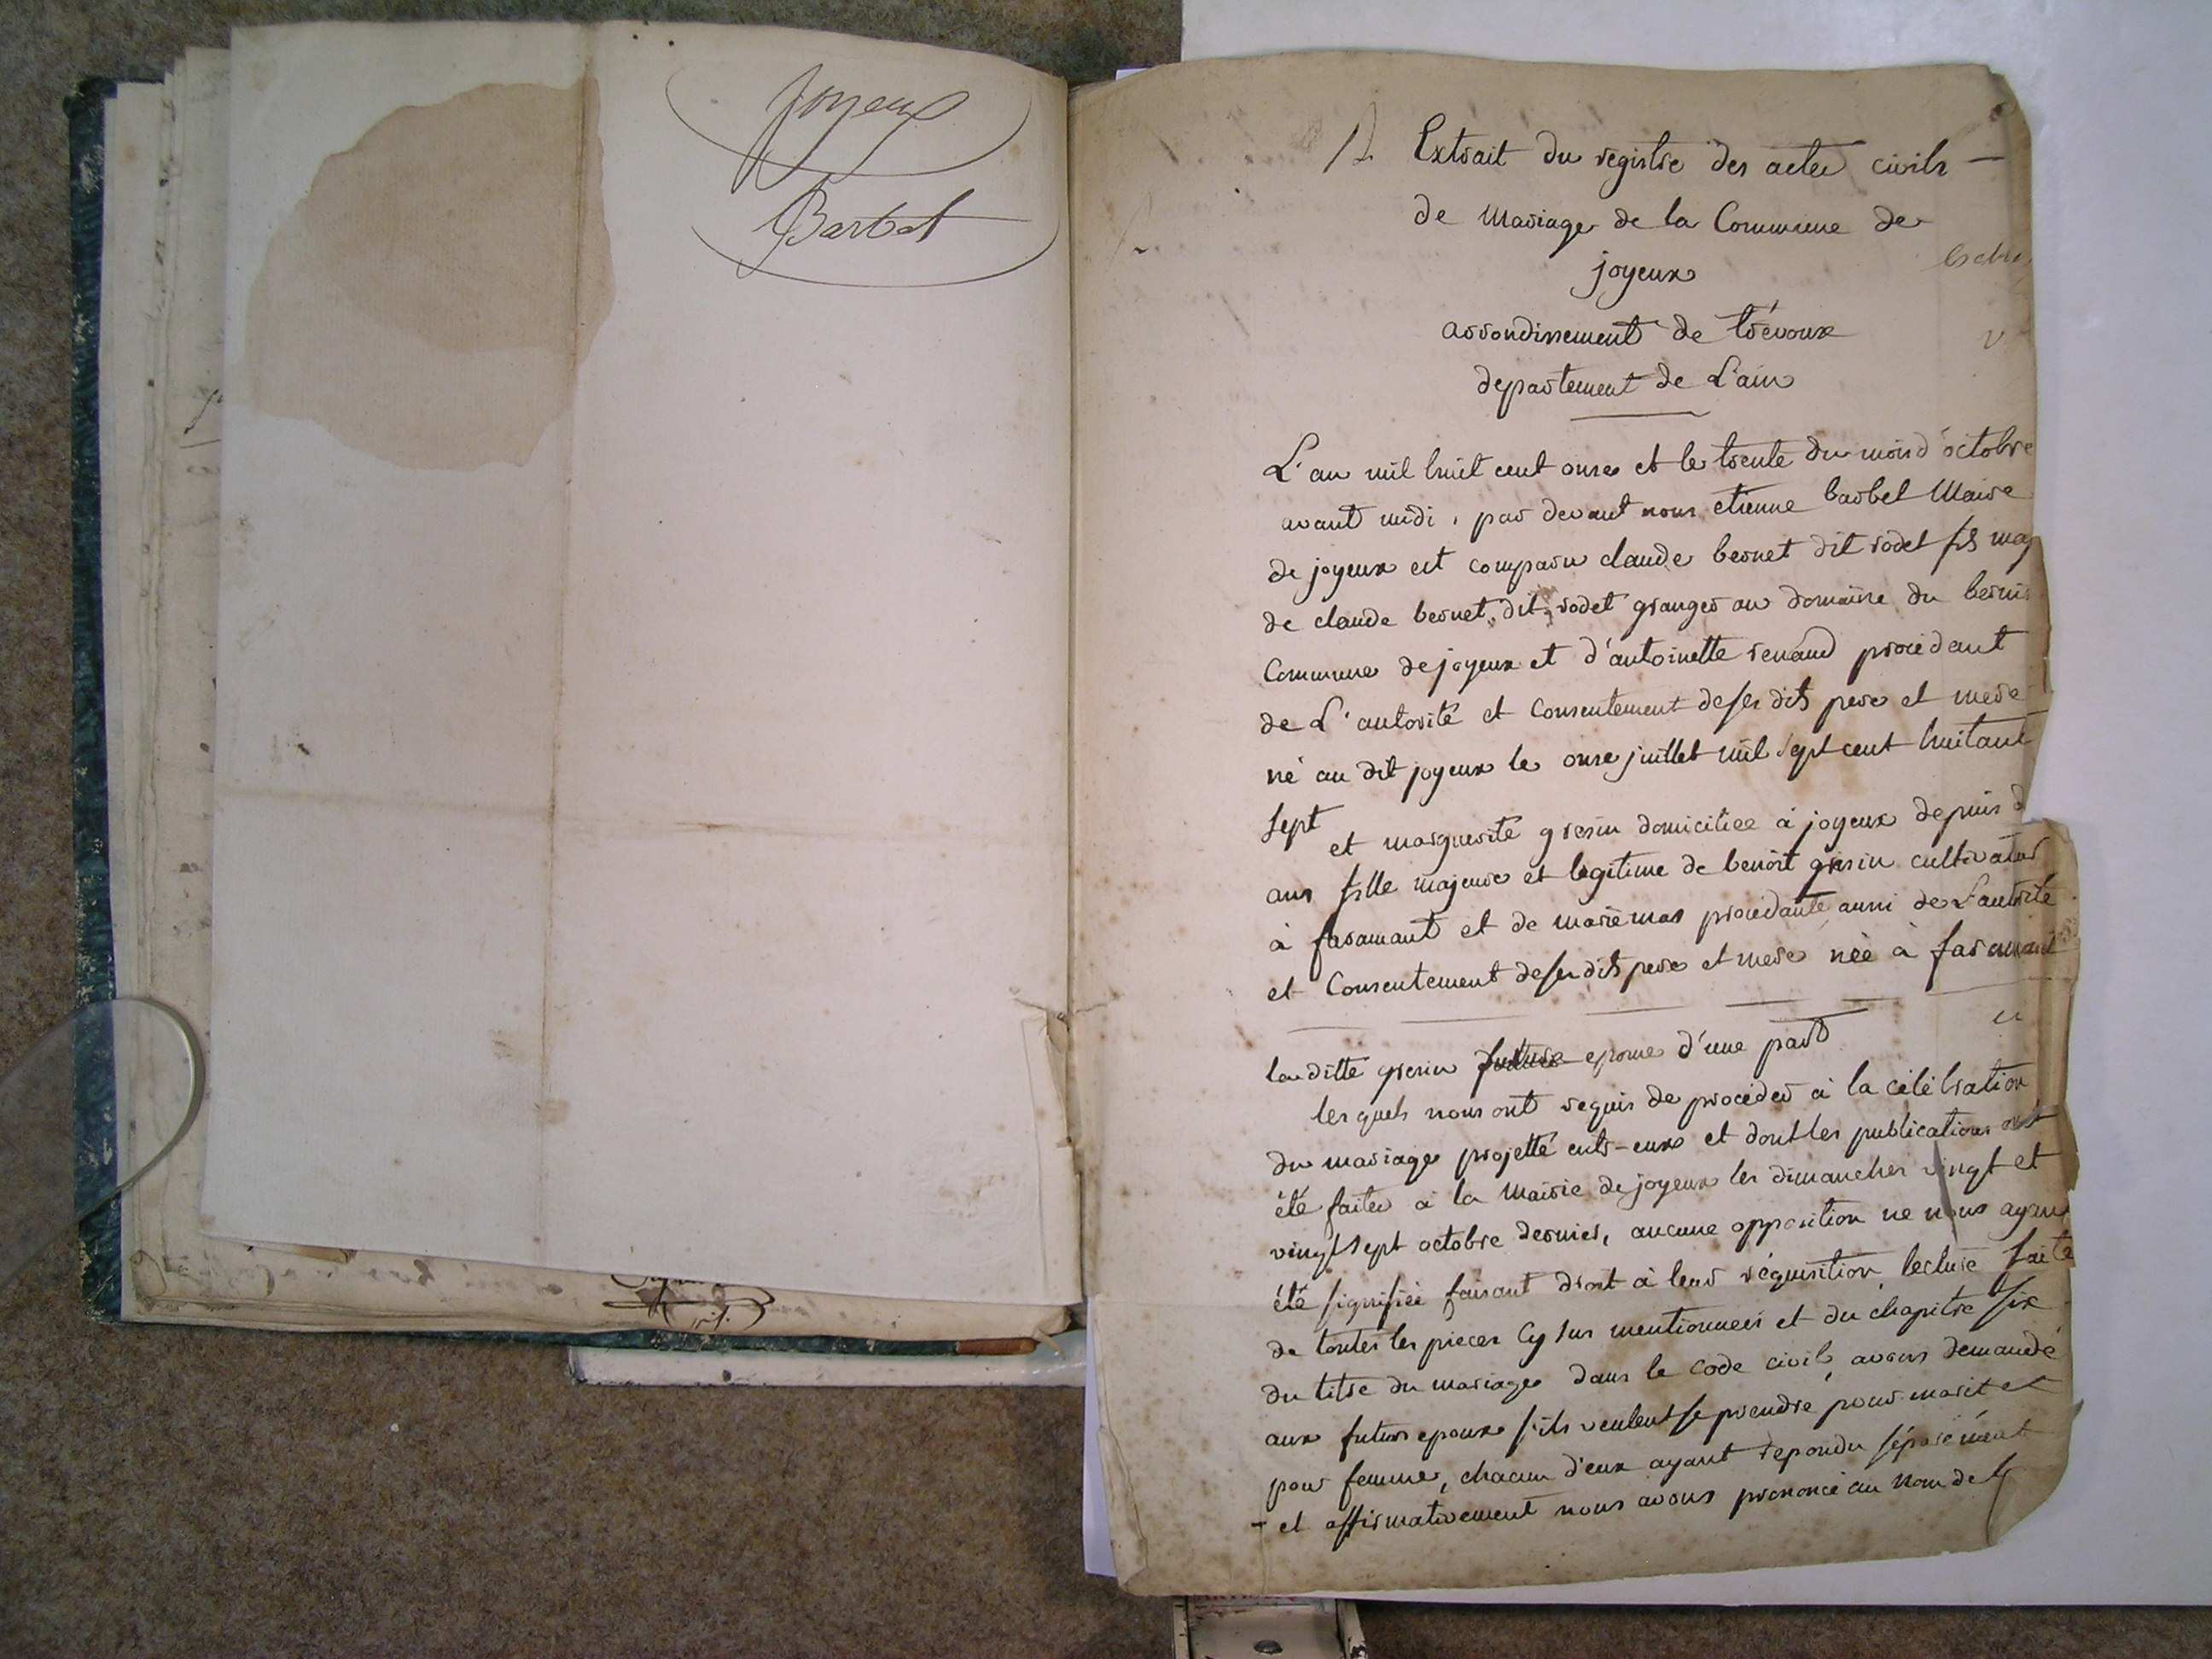 Joyeux
Barbet
12 Extrait du registre des actes civils
de Mariage de la Commune de
joyeux
arrondissement de trévoux
departement de L'ain
L'an mil huit cent onze et le trente du mois d'octobre
avant midi, par devant nous etienne barbet Maire
de joyeux est comparu claude bernet dit rodet fils maj
de claude bernet dit rodet granger au domaine du
Commune de joyeux et d'antoinette renaud procédant
de L'autorité et Consentement de ses dits pere et mere
né au dit joyeux le onze juillet mil sept cent huitant
sept
et marguerite gresin domiciliée à joyeux depuis d
ans fille majeure et legitime de benoit gresin cultivateur
à faramant et de marie mas procédante aussi de L'autorité
et Consentement de ses dits pere et mere née à faramant
la ditte gresin future epouse d'une part
lesquels nous ont requis de procéder à la célébration
du mariage projetté entr-eux et dont les publications ont
été faites à la Mairie de joyeux les dimanches vingt et
vingt sept octobre dernier, aucune opposition ne nous ayant
été signifiée faisant droit à leur réquisition, lecture faite
de toutes les pieces Cy sus mentionnées et du chapitre six
du titre du mariage dans le code civil, avons demandé
aux futurs epoux s'ils veulent se prendre pour mari et
pour femme, chacun d'eux ayant repondu séparément
et affirmativement nous avons prononcé au nom de la